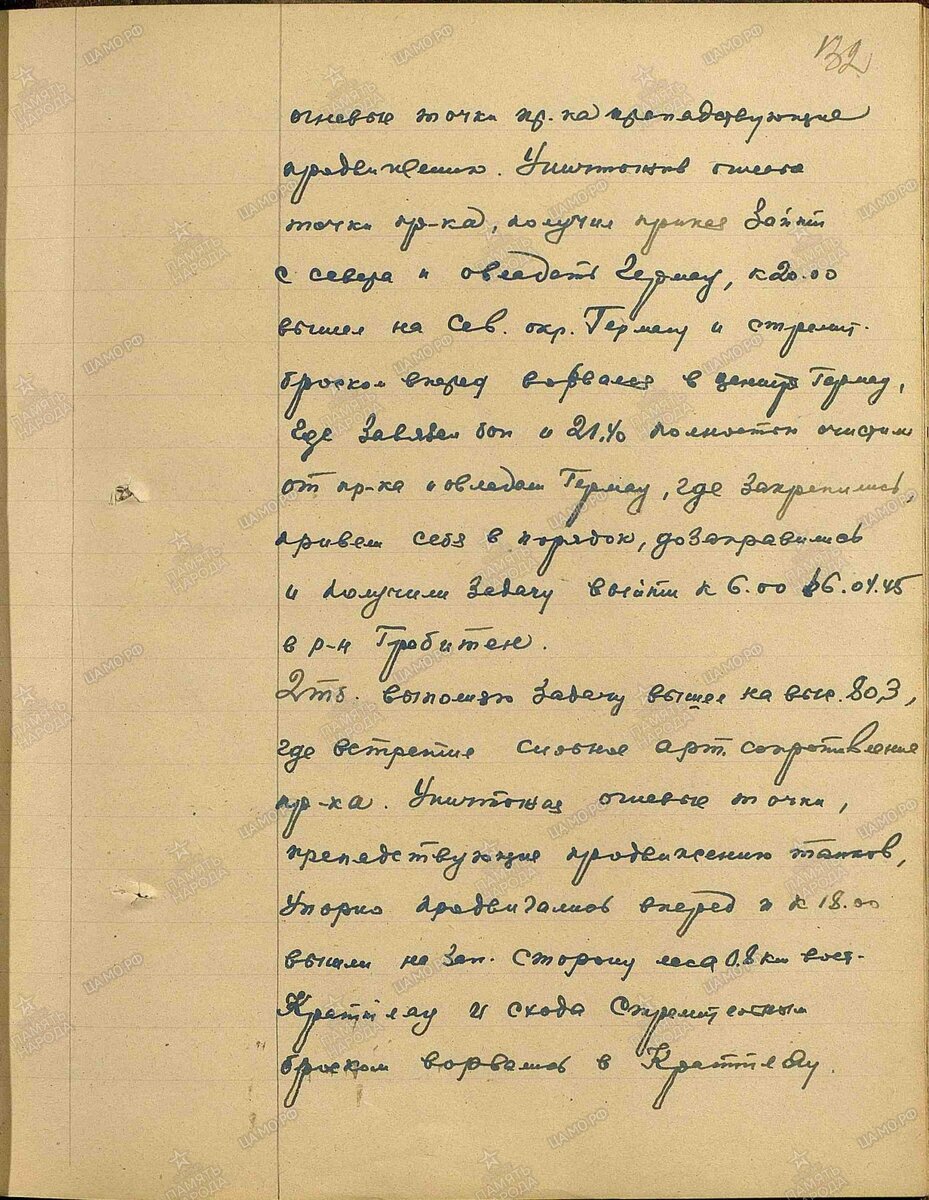 132
огневые точки пр-ка препядствующие
продвижению. Уничтожив огнев.
точки пр-ка, получил приказ Зайти
с севера и овладеть Гермау, к 20.00
вышел на Сев. окр. Гермау и стремит.
броском вперед ворвался в центр Гермау,
где Завязал бой и 21.40 полностью очистил
от пр-ка и овладел Гермау, где Закрепились,
привели себя в порядок, дозаправились
и получили Задачу выйти к 6.00 16.04.45
в р-н Гробитен.
2тб. выполняя Задачу вышел на выс. 80,3,
где встретил сильное арт. сопротивление
пр-ка. Уничтожая огневые точки,
препядствующие продвижению танков,
Упорно продвигались вперед и к 18.00
вышли на Зап. сторону леса 0.8 км вост.
Краттлау и схода Стремительным
броском ворвались в Краттлау.